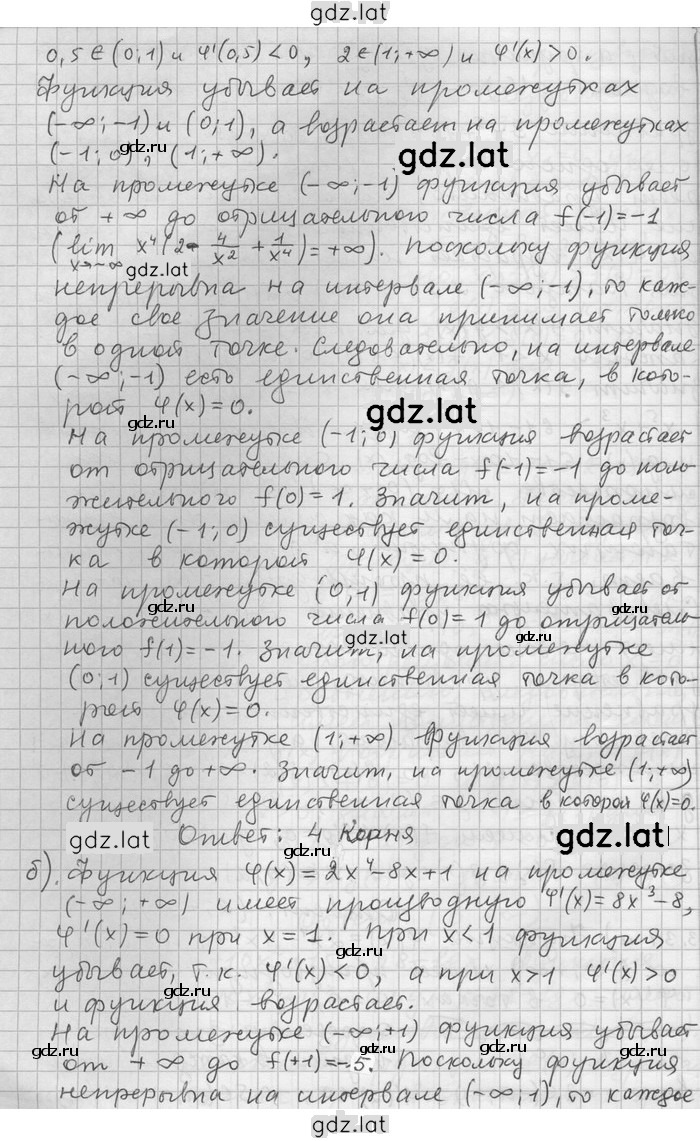 gdz.lat
0,5 ∈ (0;1) и φ'(0,5) < 0, 2 ∈ (1;+∞) и φ'(x) > 0.
Функция убывает на промежутках
(-∞;-1) и (0;1), а возрастает на промежутках
(-1;0), (1;+∞). gdz.lat
На промежутке (-∞;-1) функция убывает
от +∞ до отрицательного числа f(-1)=-1
(lim x→-∞ x⁴(2-4/x²+1/x⁴)=+∞). Поскольку функция
gdz.lat
непрерывна на интервале (-∞;-1), то каж-
дое свое значение она принимает только
в одной точке. Следовательно, на интервале
(-∞;-1) есть единственная точка, в кото-
рой φ(x)=0. gdz.lat
На промежутке (-1;0) функция возрастает
от отрицательного числа f(-1)=-1 до поло-
жительного f(0)=1. Значит, на проме-
жутке (-1;0) существует единственная точ-
ка в которой φ(x)=0.
На промежутке (0;1) функция убывает от
gdz.lat gdz.lat
положительного числа f(0)=1 до отрицатель-
ного f(1)=-1. Значит, на промежутке
gdz.lat gdz.lat
(0;1) существует единственная точка в кото-
рой φ(x)=0.
gdz.lat gdz.lat
На промежутке (1;+∞) функция возрастает
от -1 до +∞. Значит, на промежутке (1;+∞)
существует единственная точка в которой φ(x)=0.
gdz.lat Ответ: 4 корня gdz.lat
б). Функция φ(x)=2x⁴-8x+1 на промежутке
gdz.lat gdz.lat
(-∞;+∞) имеет производную φ'(x)=8x³-8,
φ'(x)=0 при x=1. При x<1 функция
gdz.lat
убывает, т.к. φ'(x)<0, а при x>1 φ'(x)>0
gdz.lat
и функция возрастает.
На промежутке (-∞;+1) функция убывает
gdz.lat gdz.lat gdz.lat
от +∞ до f(+1)=-5. Поскольку функция
непрерывна на интервале (-∞;1), то каждое
gdz.lat